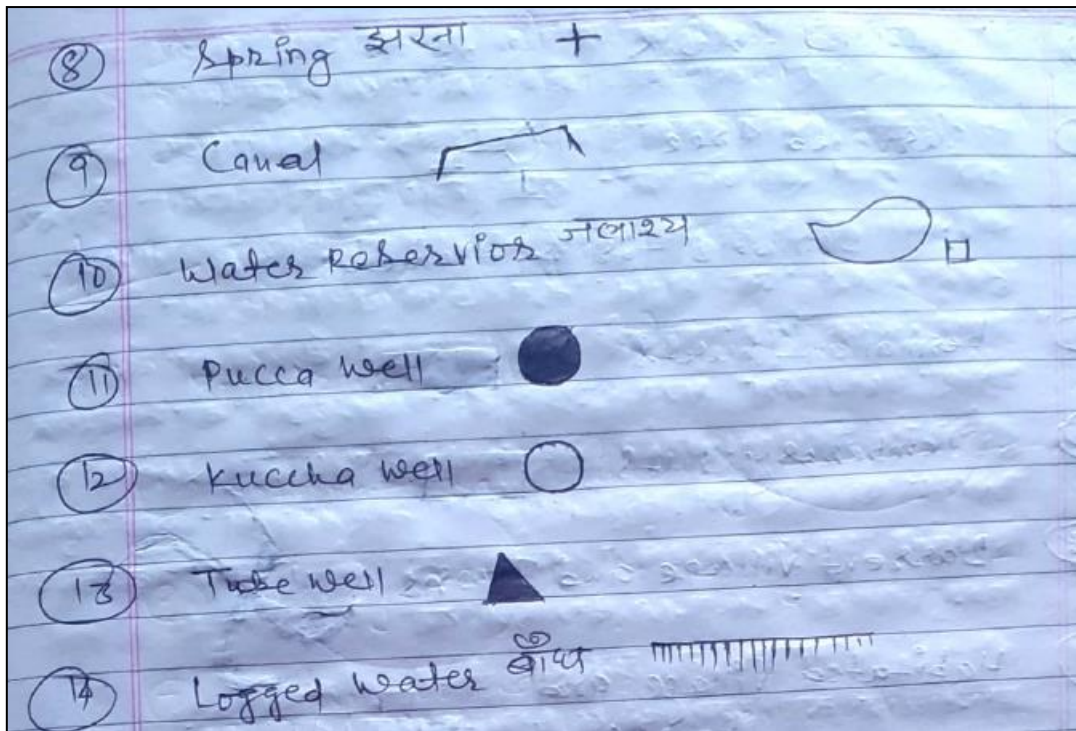 8 Spring झरना
9 Canal
10 Water Reservior जलाश्य
11 Pucca well
12 Kuccha well
13 Tube well
14 Logged Water बाँध